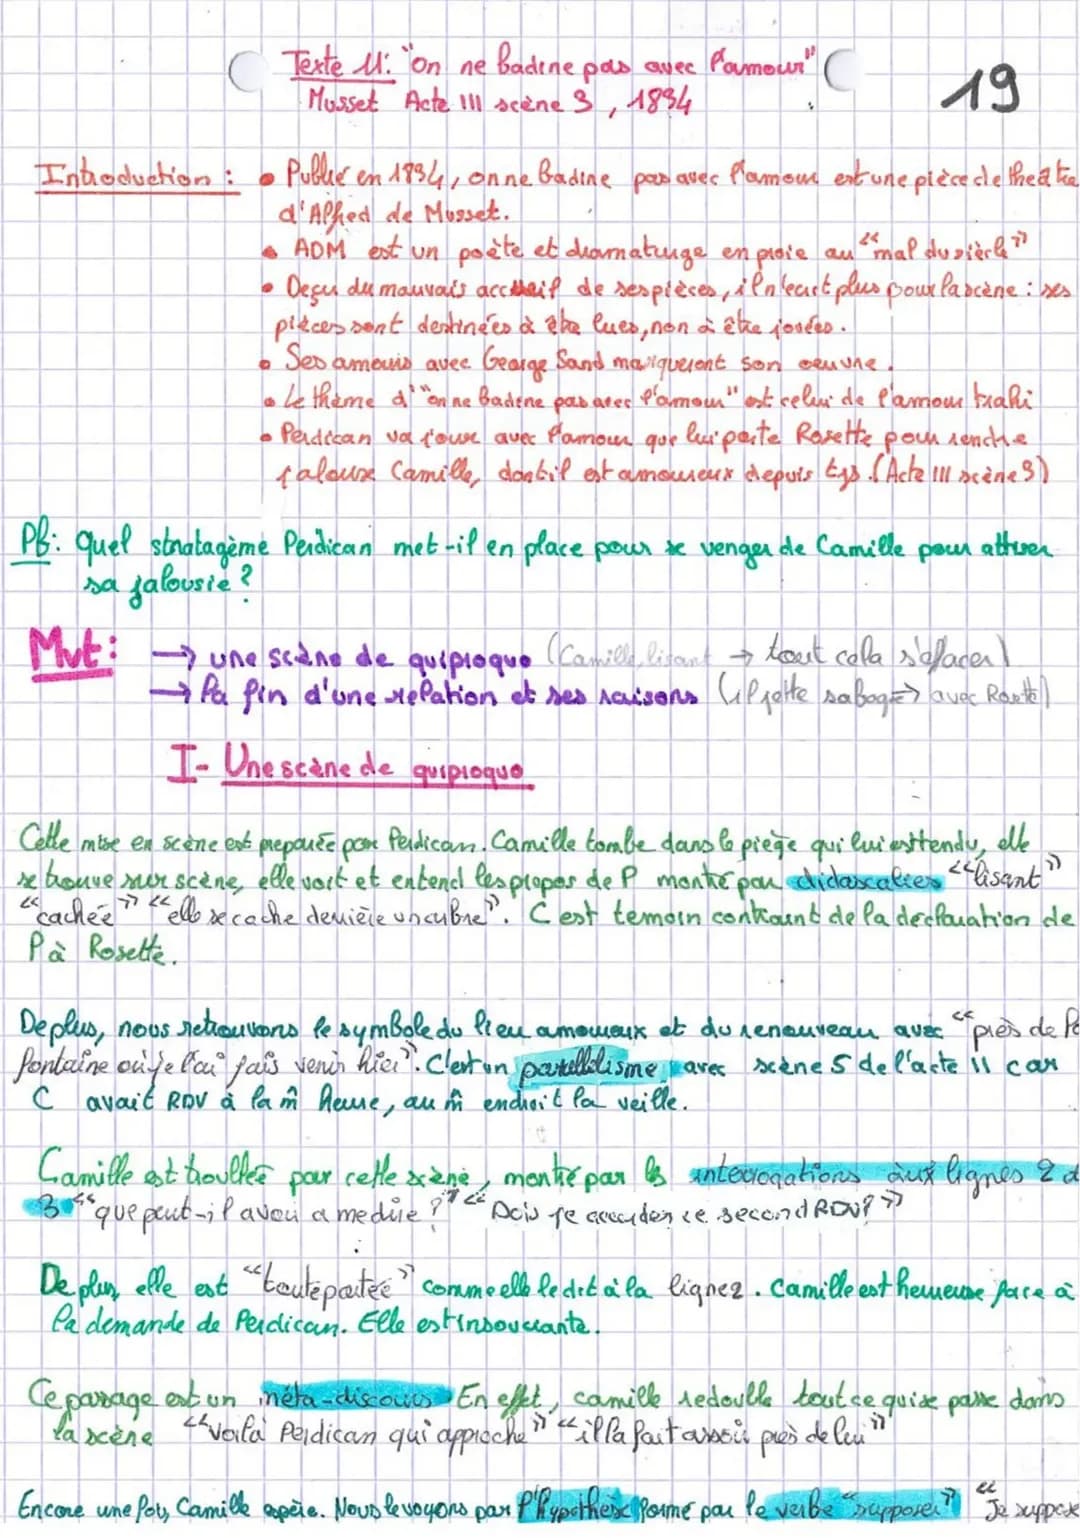 Texte 11: "On ne badine pas avec l'amour"
Musset Acte III scène 3, 1834
19
Introduction : • Publié en 1834, on ne badine pas avec l'amour est une pièce de théâtre
d'Alfred de Musset.
• ADM est un poète et dramaturge en proie au "mal du siècle"
• Deçu du mauvais accueil de ses pièces, il n'écrit plus pour la scène : ses
pièces sont destinées à être lues, non à être jouées.
• Ses amours avec George Sand marqueront son oeuvre.
• Le thème d'"on ne badine pas avec l'amour" est celui de l'amour trahi
• Perdican va jouer avec l'amour que lui porte Rosette pour rendre
jaloux Camille, dont il est amoureux depuis tjs. (Acte III scène 3)
Pb: Quel stratagème Perdican met-il en place pour se venger de Camille pour attiser
sa jalousie ?
Mvt: → une scène de quiproquo (Camille, lisant → tout cela s'effacer)
→ la fin d'une relation et ses raisons (il jette sa bague → avec Rosette)
I- Une scène de quiproquo
Cette mise en scène est préparée par Perdican. Camille tombe dans le piège qui lui est tendu, elle
se trouve sur scène, elle voit et entend les propos de P montré par didascalies "lisant"
"cachée" "elle se cache derrière un arbre". C est temoin contraint de la déclaration de
P à Rosette.
De plus, nous retrouvons le symbole du lieu amoureux et du renouveau avec "près de la
fontaine où je l'ai fais venir hier". C'est un parallélisme avec scène 5 de l'acte II car
C avait RDV à la m̂ heure, au m̂ endroit la veille.
Camille est troublée par cette scène, montré par les interrogations aux lignes 2 et
3 "que peut-il avoir a me dire ?" "Dois-je accorder ce second RDV?"
De plus, elle est "toute portée" comme elle le dit à la ligne 2. Camille est heureuse face à
la demande de Perdican. Elle est insouciante.
Ce passage est un méta-discours En effet, camille redouble tout ce qui se passe dans
la scène "voilà Perdican qui approche" "il la fait assoir près de lui"
Encore une fois, Camille espère. Nous le voyons par l'hypothèse formé par le verbe "supposer" "Je suppose